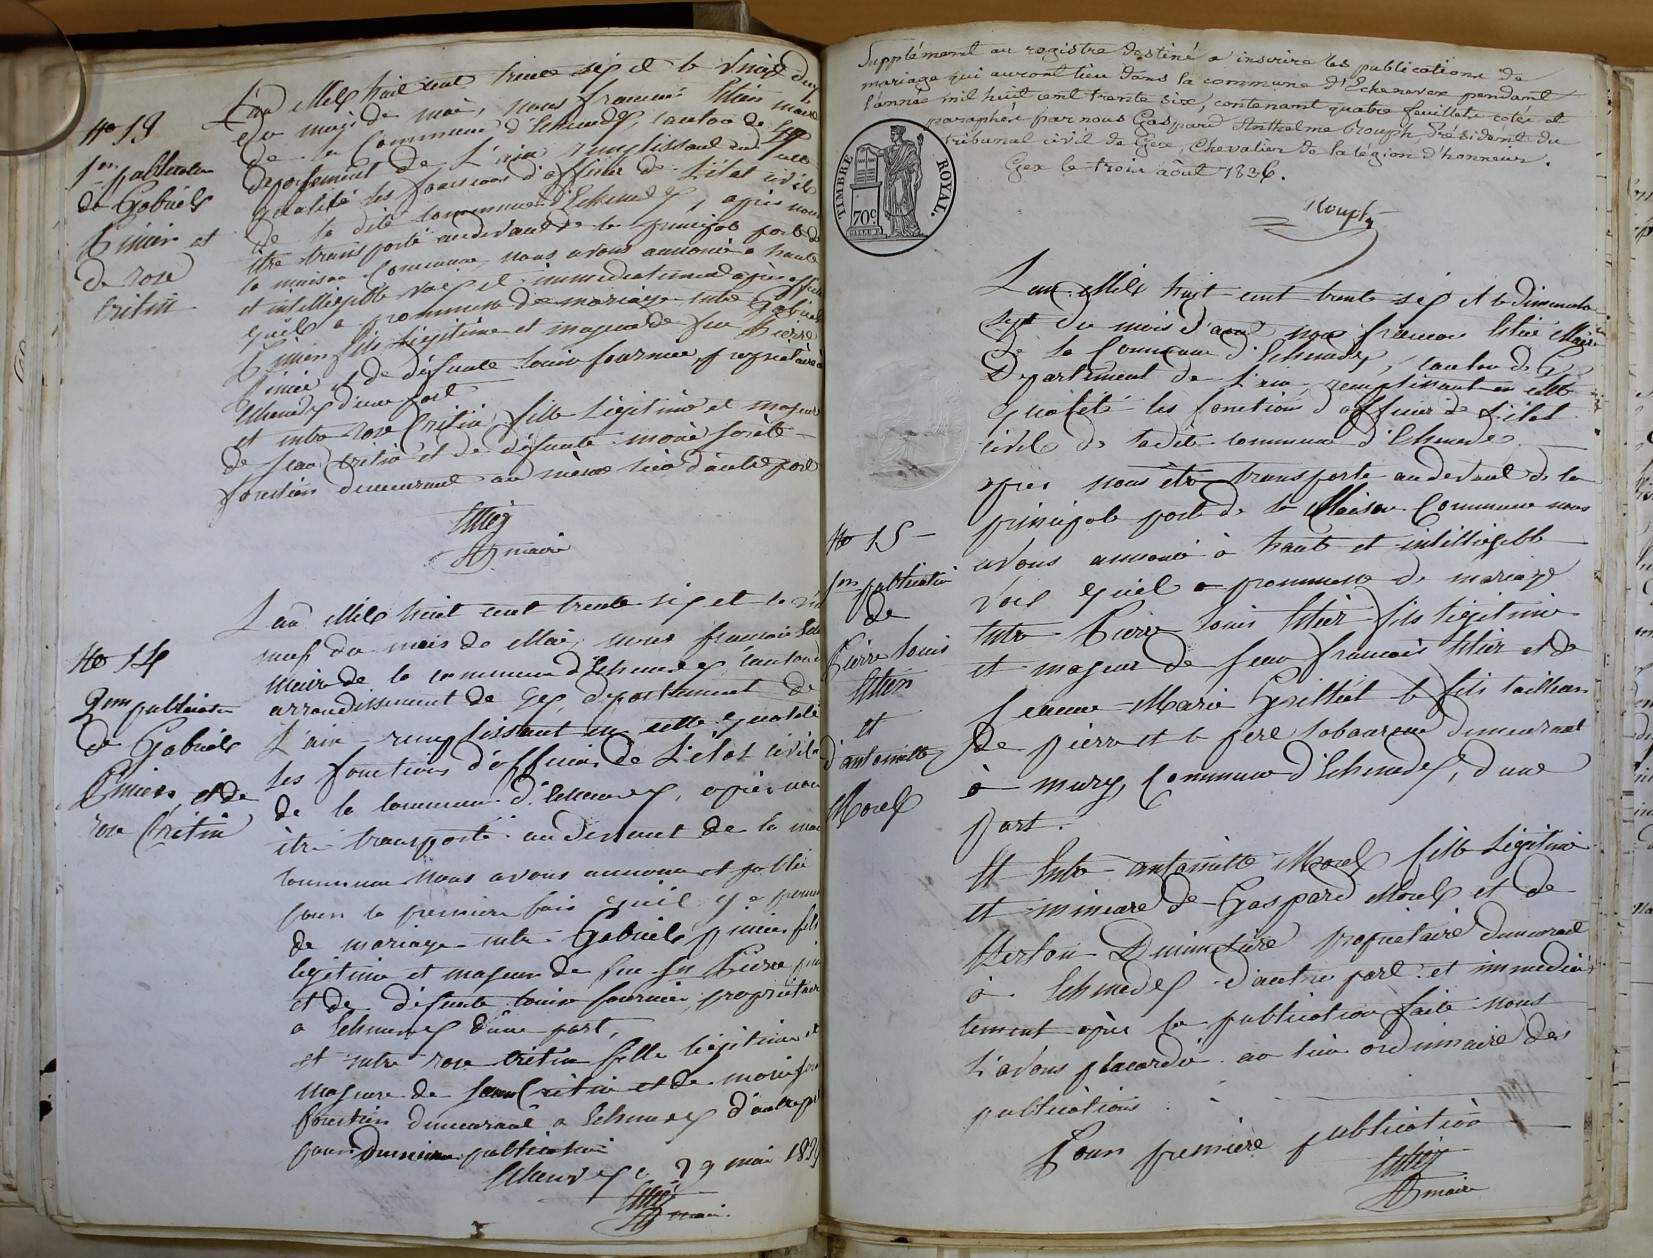 No 13
1ere publication
de Gabriel
Pinier et
de rose
Critin
L'an Mil huit cent trente six et le vingt deux
du mois de mai, nous françois maire
de la Commune d'Echenevex, canton de Gex
département de L'ain remplissant en cette
qualité les fonctions d'officier de L'état civil
de la dite commune d'Echenevex, après nous
être transporté audevant de la principale porte de
la maison commune, nous avons annoncé à haute
et intelligible voix et immediatement après
qu'il a promesse de mariage entre Gabriel
Pinier fils légitime et majeur de feu Pierre
Pinier et de défunte fournier, propriétaire à
Echenevex d'une part
et entre rose Critin fille Légitime et majeure
de jean Critin et de défunte
demeurant au même lieu d'autre part
maire
No 14
2em publication
de Gabriel
Pinier, et de
rose Critin
L'an Mil huit cent trente six et le vingt
neuf du mois de Mai, nous françois
Maire de la commune d'Echenevex canton
arrondissement de Gex, département de
L'ain remplissant en cette qualité
les fonctions d'officier de L'état civil
de la commune d'Echenevex, après nous
être transporté audevant de la
commune Nous avons annoncé et publié
pour la premiere fois qu'il y a
de mariage entre Gabriel pinier fils
legitime et majeur de feu Pierre
et de défunte fournier, propriétaire
a Echenevex d'une part,
et entre rose critin fille legitime et
majeure de jean Critin et de
demeurant a Echenevex d'autre part
pour publication
Echenevex le 29 mai 183
maire
Supplément au registre destiné a inscrire les publications de
mariage qui auront lieu dans la commune d'Echenevex pendant
l'année mil huit cent trente six, contenant quatre feuillets cotés et
paraphés par nous Gaspard Anthelme Rouph, président du
tribunal civil de Gex, Chevalier de la légion d'honneur.
Gex le trois août 1836.
Rouph
TIMBRE ROYAL.
70c.
No 15
1ere publication
de
Pierre Louis
et
d'antoinette
Morel
L'an Mil huit cent trente six et le Dimanche
sept du mois d'aout nous françois Maire
de la Commune d'Echenevex, canton de Gex
Departement de L'ain remplissant en cette
qualité les fonctions d'officier de L'état
civil de la dite commune d'Echenevex
apres nous être transporté audevant de la
principale porte de la Maison Commune nous
avons annoncé à haute et intelligible
voix qu'il a promesse de mariage
entre Pierre Louis fils légitime
et majeur de jean François et de
Jeanne Marie le fils tailleur
de pierre et le pere laboureur demeurant
à mury, Commune d'Echenevex, d'une
part.
Et Entre antoinette Morel fille Légitime
et mineure de Gaspard Morel et de
propriétaire demeurant
à Echenevex d'autre part. et immedia
tement après la publication faite nous
L'avons placardé au lieu ordinnaire des
publications.
Pour première publication
maire